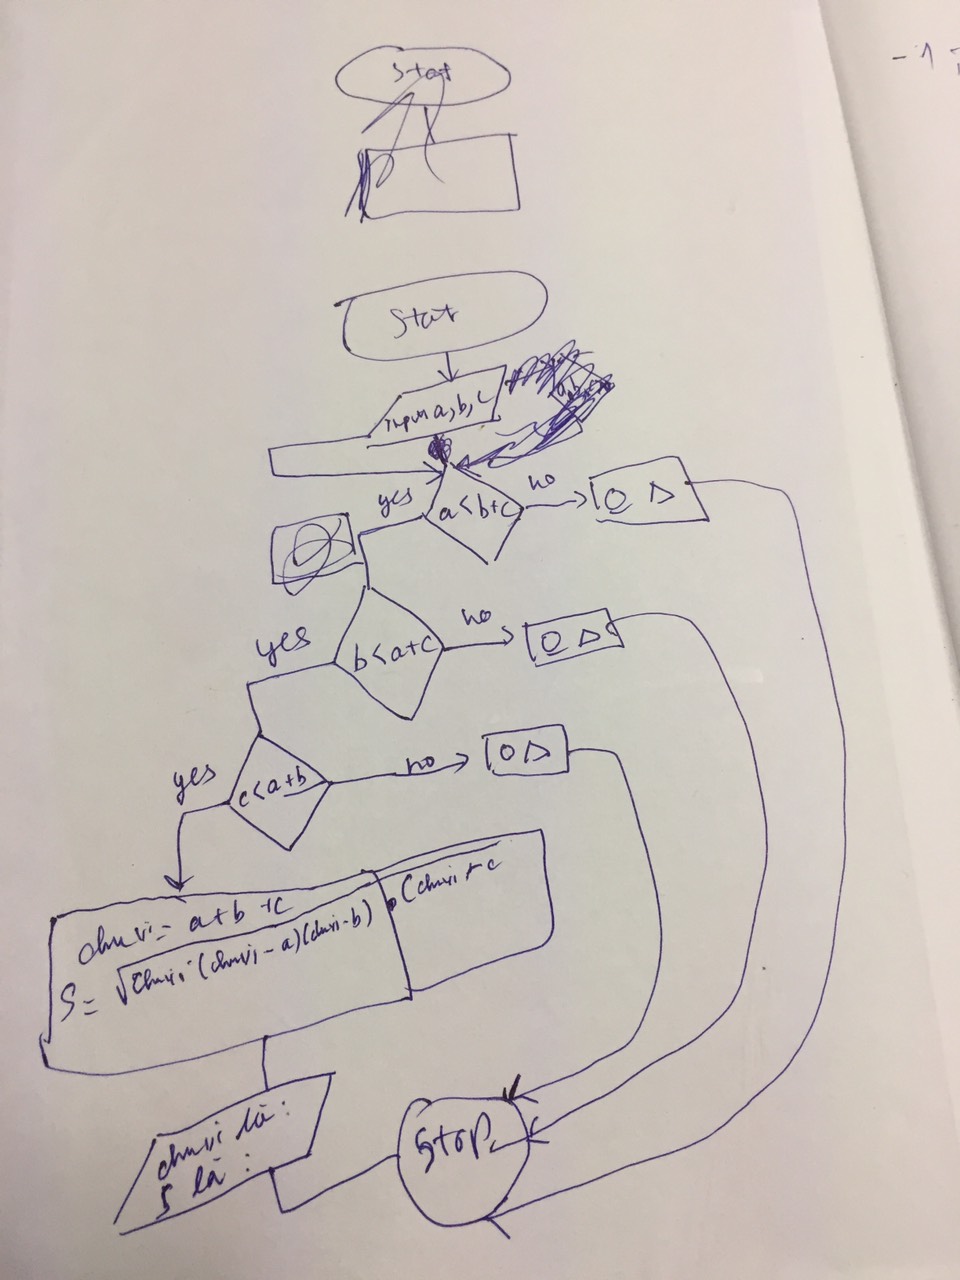 Stat
- 1
Stat
input a, b, c
a, b, c
yes
a < b+c
no
0 Δ
yes
b < a+c
no
0 Δ
yes
c < a+b
no
0 Δ
chuvi = a+b +c
S = √chuvi.(chuvi-a)(chuvi-b).(chuvi+c
chuvi là:
S là:
Stop